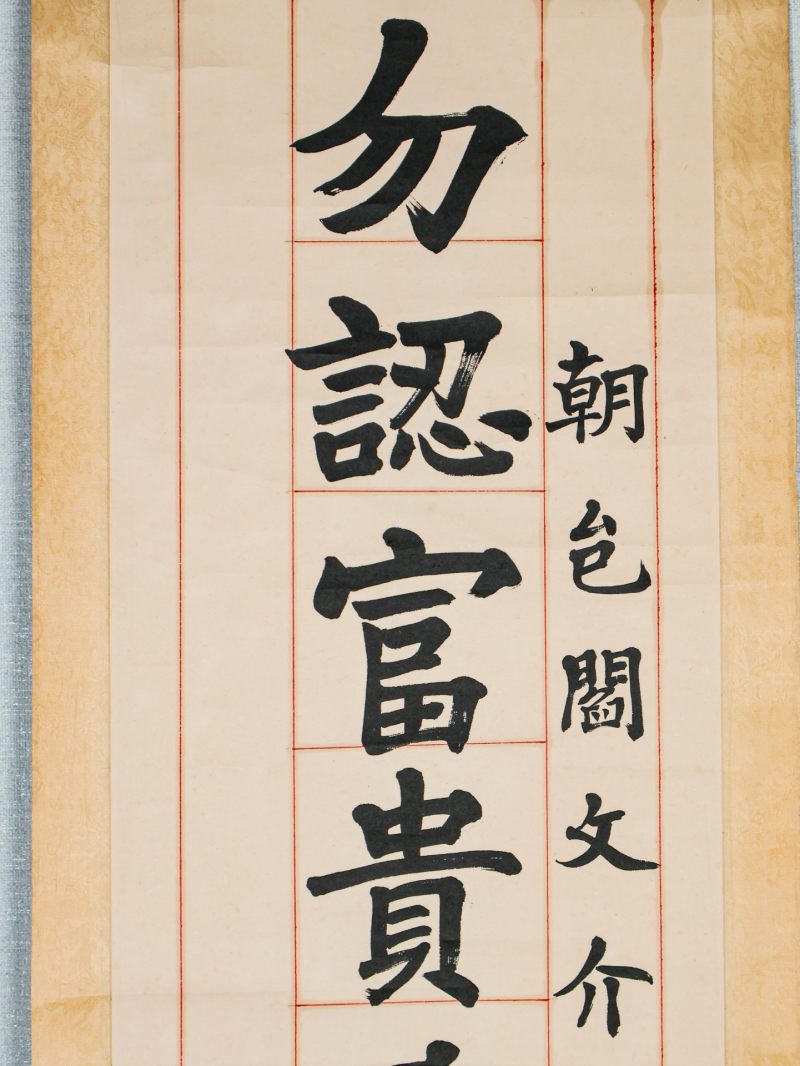 朝邑閻文介
勿認富貴